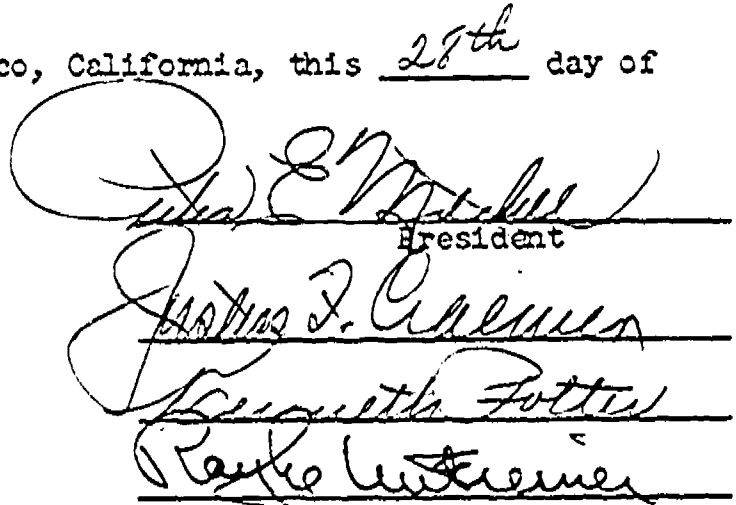 co, California, this 28th day of
Peter E Mitchell
President
Justus F. Craemer
Kenneth Potter